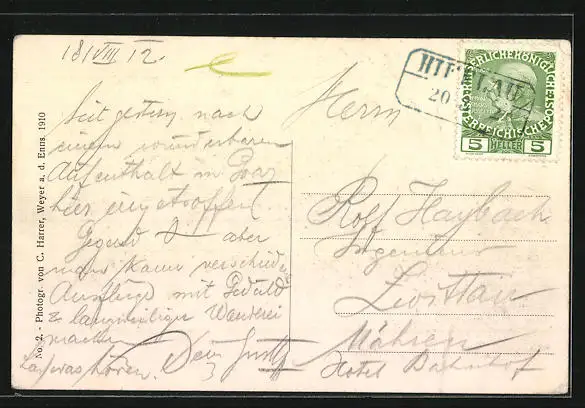 18/VIII 12.
Seit gestern nach
einem wunderbaren
Aufenthalt in Graz
hier eingetroffen.
Gegend aber
man kann verschiedene
Ausflüge mit Geduld
& langweiliger Wanderei
machen.
Lass was hören. Dein
No 2. - Photogr. von C. Harrer, Weyer a. d. Enns. 1910
HIEFLAU
20
KAISERLICHE KÖNIGLICHE
ÖSTERREICHISCHE
5 HELLER 5
Herrn
Rolf Haybäch
Ingenieur
Zwittau
Mähren
Hotel Bahnhof